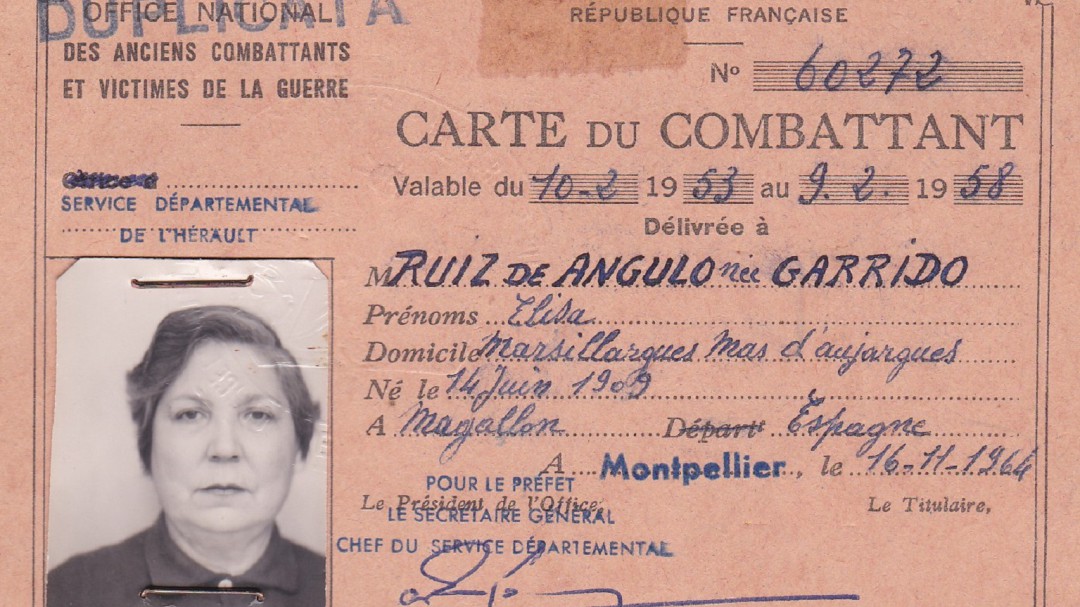 DUPLICATA
OFFICE NATIONAL
DES ANCIENS COMBATTANTS
ET VICTIMES DE LA GUERRE
RÉPUBLIQUE FRANÇAISE
Nº 60272
CARTE DU COMBATTANT
Valable du 10-2 1953 au 9.2. 1958
SERVICE DÉPARTEMENTAL
DE L'HÉRAULT
Délivrée à
M RUIZ DE ANGULO née GARRIDO
Prénoms Elisa
Domicile Marsillargues Mas d'aujargues
Né le 14 Juin 1909
A Magallon Départt Espagne
A Montpellier, le 16-11-1964
POUR LE PRÉFET
Le Président de l'Office, Le Titulaire,
LE SECRÉTAIRE GÉNÉRAL
CHEF DU SERVICE DÉPARTEMENTAL